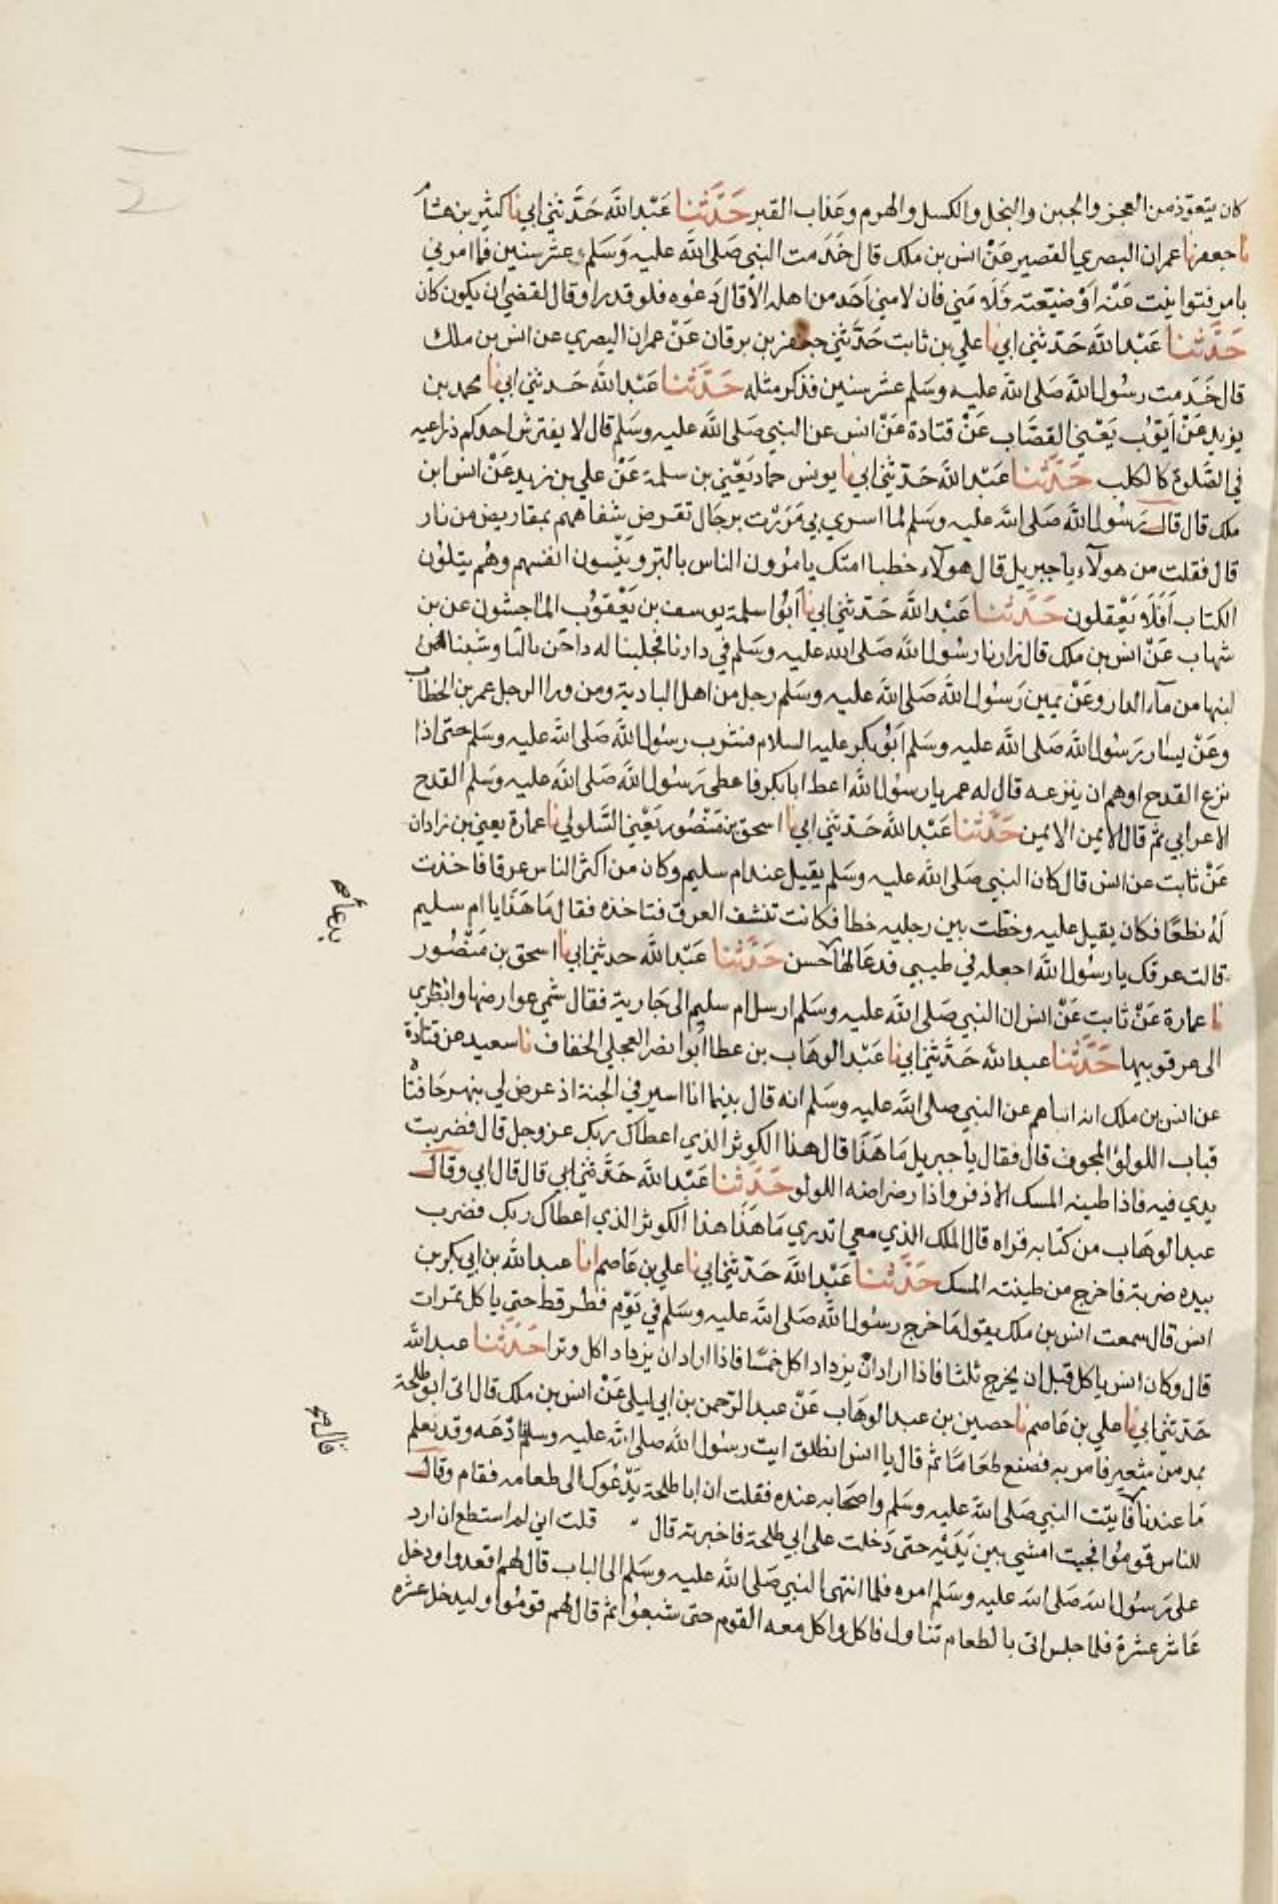 كان يتعوّذ من العجز والجبن والبخل والكسل والهرم وعذاب القبر حَدَّثَنا عَبْد الله حَدَّثني ابي نا كثير بن هشام
نا جعفر نا عمران البصري القصير عَنْ انس بن ملك قال خَدَمت النبي صَلى الله عليه وَسَلم عشر سنين فما امرني
بامر فتوانيت عَنْه اوْ ضيّعته فَلَامَني فان لامني اَحَد من اهله الا قال دَعوه فلو قدر او قال لقضي ان يكون كان
حَدَّثَنا عَبْد الله حَدثني ابي نا علي بن ثابت حَدَّثني جعفر بن برقان عَنْ عمران البصري عن انس بن ملك
قال خَدَمت رسُول الله صَلى الله عليه وسَلم عشر سنين فذكر مثله حَدَّثَنا عَبْد الله حَدثني ابي نا محمد بن
يزيد عَنْ اَيّوُب يَعْني القصَّاب عَنْ قتادة عَنْ انس عن النبي صَلى الله عليه وسَلم قال لا يفترش احدكم ذراعيه
في الصَّلوة كالكلب حَدَّثَنا عَبْد الله حَدّثني ابي نا يونس حماد يَعْني بن سلمة عَنْ علي بن زيد عَنْ انس ابن
ملك قال قال رسُول الله صَلى الله عليه وسَلم لما اسري بي مَرَرْت برجَال تقرض شفاههم بمقاريض من نار
قال فقلت من هولآء ياجبريل قال هولآء خطبا امتك يامرُون الناس بالبر وينْسون انفسهم وهُم يتلوُن
الكتاب اَفَلَا يَعْقلون حَدَّثَنا عَبْد الله حَدّثني ابي نا اَبُوا سلمة يوسف بن يَعْقوُب الماجشون عن بن
شهاب عَنْ انس بن ملك قال زارنا رسُول الله صَلى الله عليه وسَلم في دارنا فحلبنا له داجن بالنا وشبنا لهمن
لبنها من مآء الدار وعَنْ يمين رَسوُل الله صَلى الله عليه وسَلم رجل من اهل البادية ومن ورا الرجل عمر بن الخطاب
وعَنْ يسَار رَسوُل الله صَلى الله عليه وسَلم اَبوُ بكر عليه السلام فشرب رسُول الله صَلى الله عليه وسَلم حَتى اذا
نزع القدح او هم ان ينزعه قال له عمر يا رسوُل الله اعط ابا بكر فاعطى رَسوُل الله صَلى الله عليه وسَلم القدح
الاعرابي ثم قال الايمن الايمن حَدَّثَنا عَبْد الله حَدثني ابي نا اسحق بن مَنْصُور يَعْني السَّلولي نا عمارة يعني بن زاذان
عَنْ ثابت عن انس قال كان النبي صَلى الله عليه وسَلم يقيل عند ام سليم وكان من اكثر الناس عرقا فاخذت
لَهُ نطعًا فكان يقيل عليه وخطت بين رجليه خطا فكانت تنشف العرق فتاخذه فقال مَا هَذَا يا ام سليم
قالت عرقك يا رسُول الله اجعله في طيبي فدعَا لها حسن حَدَّثَنا عَبْد الله حدثني ابي نا اسحق بن مَنْصُور
يدعا
نا عمارة عَنْ ثابت عَنْ انس ان النبي صَلى الله عليه وسَلم ارسل ام سليم الى جَارية فقال شمي عوارضها وانظري
الى عرقوبيها حَدَّثَنا عبد الله حَدَّثني ابي نا عَبْد الوهَاب بن عطا ابوا نضر العجلي الخفاف نا سعيد عن قتادة
عن انس بن ملك انه انباهم عن النبي صلى الله عليه وسَلم انه قال بينما انا اسير في الجنة اذ عرض لي بنهر حَافتاه
قباب اللولؤ المجوف قال فقال ياجبريل مَا هَذَا قال هذا الكوثر الذي اعطاك ربك عز وجل قال فضربت
يدي فيه فاذا طينه المسك الاذفر واذا رضراضه اللولو حَدَّثَنا عَبْد الله حَدَّثني ابي قال قال ابي وقال
عبد الوهَاب من كتابه قراه قال الملك الذي معي اتدري مَا هَذَا هذا الكوثر الذي اعطاك ربك فضرب
بيده ضربة فاخرج من طينته المسك حَدَّثَنا عَبْد الله حَدّثني ابي نا علي بن عَاصم انا عبد الله بن ابي بكر بن
انس قال سمعت انس بن ملك يقول مَا خرج رسوُل الله صَلى الله عليه وسَلم في يَوْم فطر قط حتى ياكل تمرات
قال وكان انس ياكل قبل ان يخرج ثلثا فاذا اراد ان يزداد اكل خمسًا فاذا اراد ان يزداد اكل وترا حَدَّثَنا عبد الله
حَدّثني ابي نا علي بن عَاصم نا حصين بن عبد الوهَاب عَنْ عبد الرّحمن بن ابي ليلى عَنْ انس بن ملك قال اتى ابو طلحة
قال
بمد من شعير فامر به فصنع طعَامًا ثم قال يا انس انطلق ايت رسول الله صلى الله عليه وسلم فادْعه وقد تعلم
مَا عندنا فاتيت النبي صَلى الله عليه وسَلم واصحَابه عنده فقلت ان ابا طلحة يَدْعُوك الى طعامه فقام وقال
للناس قومُوا فجيت امشي بين يَدَيْه حتى دَخلت على ابي طلحة فاخبرته قال قلت اني لم استطع ان ارد
على رسوُل الله صَلى الله عليه وسَلم امره فلما انتهى النبي صَلى الله عليه وسَلم الى الباب قال لهم اقعدوا ودخل
عَاشر عشرة فلما جلس اتى بالطعام تناول فاكل واكل معه القوم حتى شبعوُا ثم قال لهم قومُوا وليدخل عشرة